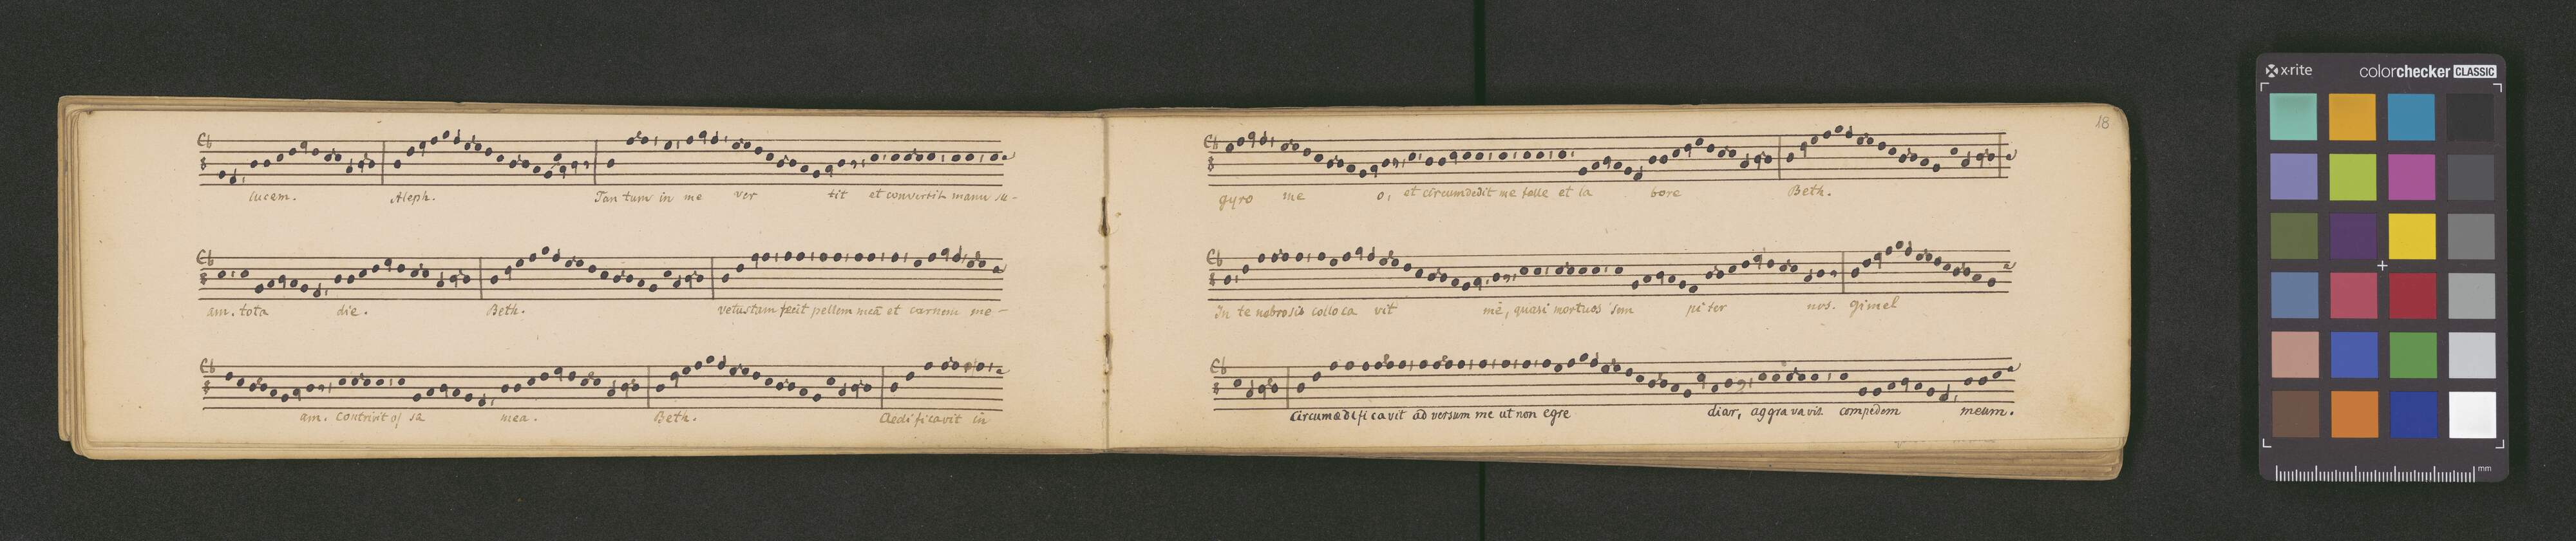 lucem. Aleph. Tan tum in me ver tit et convertit manu su-
am. tota die. Beth. vetustam fecit pellem meā et carnem me-
am. contrivit os sa mea. Beth. Aedificavit in
18
gyro me o, et circumdedit me felle et la bore Beth.
In te nebrosis colloca vit mē, quasi mortuos sem piter nos. gimel
Circumædificavit adversum me ut non egre diar, aggravavit compedem meum.
x-rite colorchecker CLASSIC
mm